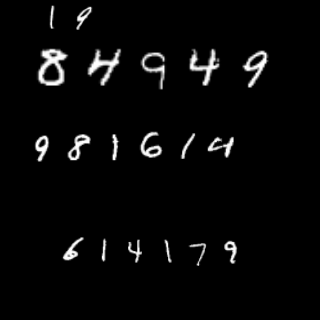 19
84949
981614
614179